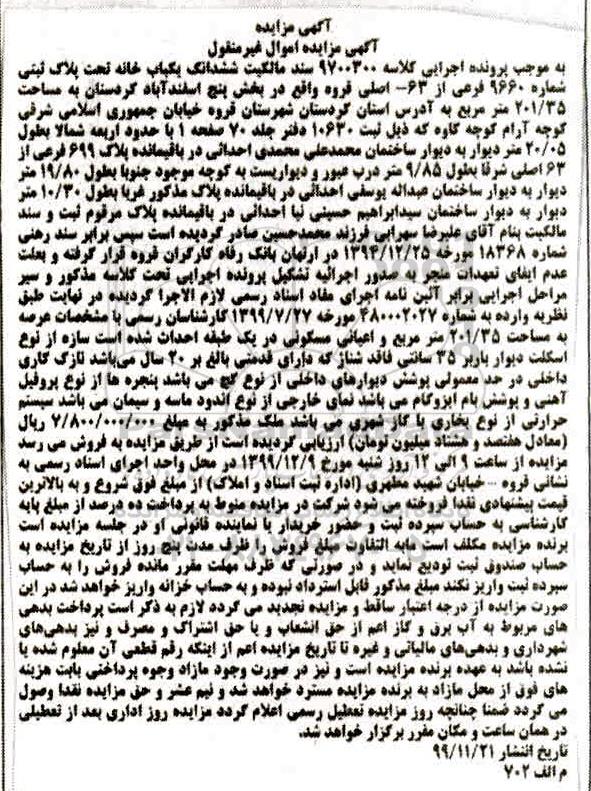 آگهی مزایده
آگهی مزایده اموال غیرمنقول
به موجب پرونده اجرایی کلاسه ۹۷۰۰۳۰۰ سند مالکیت ششدانگ یکباب خانه تحت پلاک ثبتی
شماره ۹۶۶۰ فرعی از ۶۳- اصلی قروه واقع در بخش پنج اسفندآباد کردستان به مساحت
۲۰۱/۳۵ متر مربع به آدرس استان کردستان شهرستان قروه خیابان جمهوری اسلامی شرقی
کوچه آرام کوچه کاوه که ذیل ثبت ۱۰۶۳۰ دفتر جلد ۷۰ صفحه ۱ با حدود اربعه شمالا بطول
۲۰/۰۵ متر دیوار به دیوار ساختمان محمدعلی محمدی احداثی در باقیمانده پلاک ۶۹۹ فرعی از
۶۳ اصلی شرقا بطول ۹/۸۵ متر درب عبور و دیواریست به کوچه موجود جنوبا بطول ۱۹/۸۰ متر
دیوار به دیوار ساختمان عبداله یوسفی احداثی در باقیمانده پلاک مذکور غربا بطول ۱۰/۳۰ متر
دیوار به دیوار ساختمان سیدابراهیم حسینی نیا احداثی در باقیمانده پلاک مرقوم ثبت و سند
مالکیت بنام آقای علیرضا سهرابی فرزند محمدحسین صادر گردیده است سپس برابر سند رهنی
شماره ۱۸۳۶۸ مورخه ۱۳۹۴/۱۲/۲۵ در ارتهان بانک رفاه کارگران قروه قرار گرفته و بعلت
عدم ایفای تعهدات منجر به صدور اجرائیه تشکیل پرونده اجرایی تحت کلاسه مذکور و سیر
مراحل اجرایی برابر آئین نامه اجرای مفاد اسناد رسمی لازم الاجرا گردیده در نهایت طبق
نظریه وارده به شماره ۴۸۰۰۰۲۰۲۷ مورخه ۱۳۹۹/۷/۲۷ کارشناسان رسمی با مشخصات عرصه
به مساحت ۲۰۱/۳۵ متر مربع و اعیانی مسکونی در یک طبقه احداث شده است سازه از نوع
اسکلت دیوار باربر ۳۵ سانتی فاقد شناژ که دارای قدمتی بالغ بر ۲۰ سال می‌باشد نازک کاری
داخلی در حد معمولی پوشش دیوارهای داخلی از نوع گچ می باشد پنجره ها از نوع پروفیل
آهنی و پوشش بام ایزوگام می باشد نمای خارجی از نوع اندود ماسه و سیمان می باشد سیستم
حرارتی از نوع بخاری با گاز شهری می باشد ملک مذکور به مبلغ ۷/۸۰۰/۰۰۰/۰۰۰ ریال
(معادل هفتصد و هشتاد میلیون تومان) ارزیابی گردیده است از طریق مزایده به فروش می رسد
مزایده از ساعت ۹ الی ۱۲ روز شنبه مورخ ۱۳۹۹/۱۲/۹ در محل واحد اجرای اسناد رسمی به
نشانی قروه - خیابان شهید مطهری (اداره ثبت اسناد و املاک) از مبلغ فوق شروع و به بالاترین
قیمت پیشنهادی نقدا فروخته می شود شرکت در مزایده منوط به پرداخت ده درصد از مبلغ پایه
کارشناسی به حساب سپرده ثبت و حضور خریدار یا نماینده قانونی او در جلسه مزایده است
برنده مزایده مکلف است مابه التفاوت مبلغ فروش را ظرف مدت پنج روز از تاریخ مزایده به
حساب صندوق ثبت تودیع نماید و در صورتی که ظرف مهلت مقرر مانده فروش را به حساب
سپرده ثبت واریز نکند مبلغ مذکور قابل استرداد نبوده و به حساب خزانه واریز خواهد شد در این
صورت مزایده از درجه اعتبار ساقط و مزایده تجدید می گردد لازم به ذکر است پرداخت بدهی
های مربوط به آب برق و گاز اعم از حق انشعاب و یا حق اشتراک و مصرف و نیز بدهی‌های
شهرداری و بدهی‌های مالیاتی و غیره تا تاریخ مزایده اعم از اینکه رقم قطعی آن معلوم شده یا
نشده باشد به عهده برنده مزایده است و نیز در صورت وجود مازاد وجوه پرداختی بابت هزینه
های فوق از محل مازاد به برنده مزایده مسترد خواهد شد و نیم عشر و حق مزایده نقدا وصول
می گردد ضمنا چنانچه روز مزایده تعطیل رسمی اعلام گردد مزایده روز اداری بعد از تعطیلی
در همان ساعت و مکان مقرر برگزار خواهد شد.
تاریخ انتشار ۹۹/۱۱/۲۱
م الف ۷۰۲